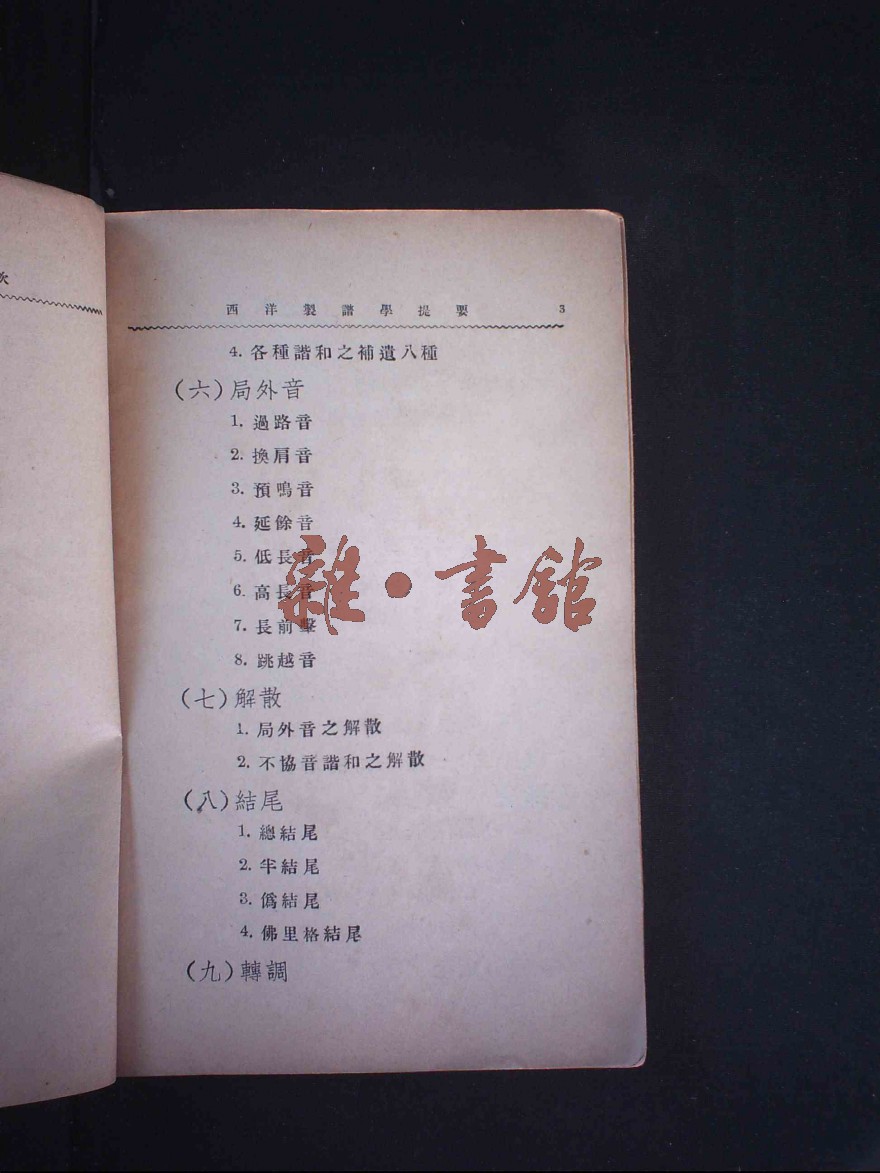 次
西洋製譜學提要 3
4. 各種諧和之補遺八種
(六)局外音
1. 過路音
2. 換肩音
3. 預鳴音
4. 延餘音
5. 低長音
6. 高長音
7. 長前擊
8. 跳越音
雜·書館
(七)解散
1. 局外音之解散
2. 不協音諧和之解散
(八)結尾
1. 總結尾
2. 半結尾
3. 僞結尾
4. 佛里格結尾
(九)轉調